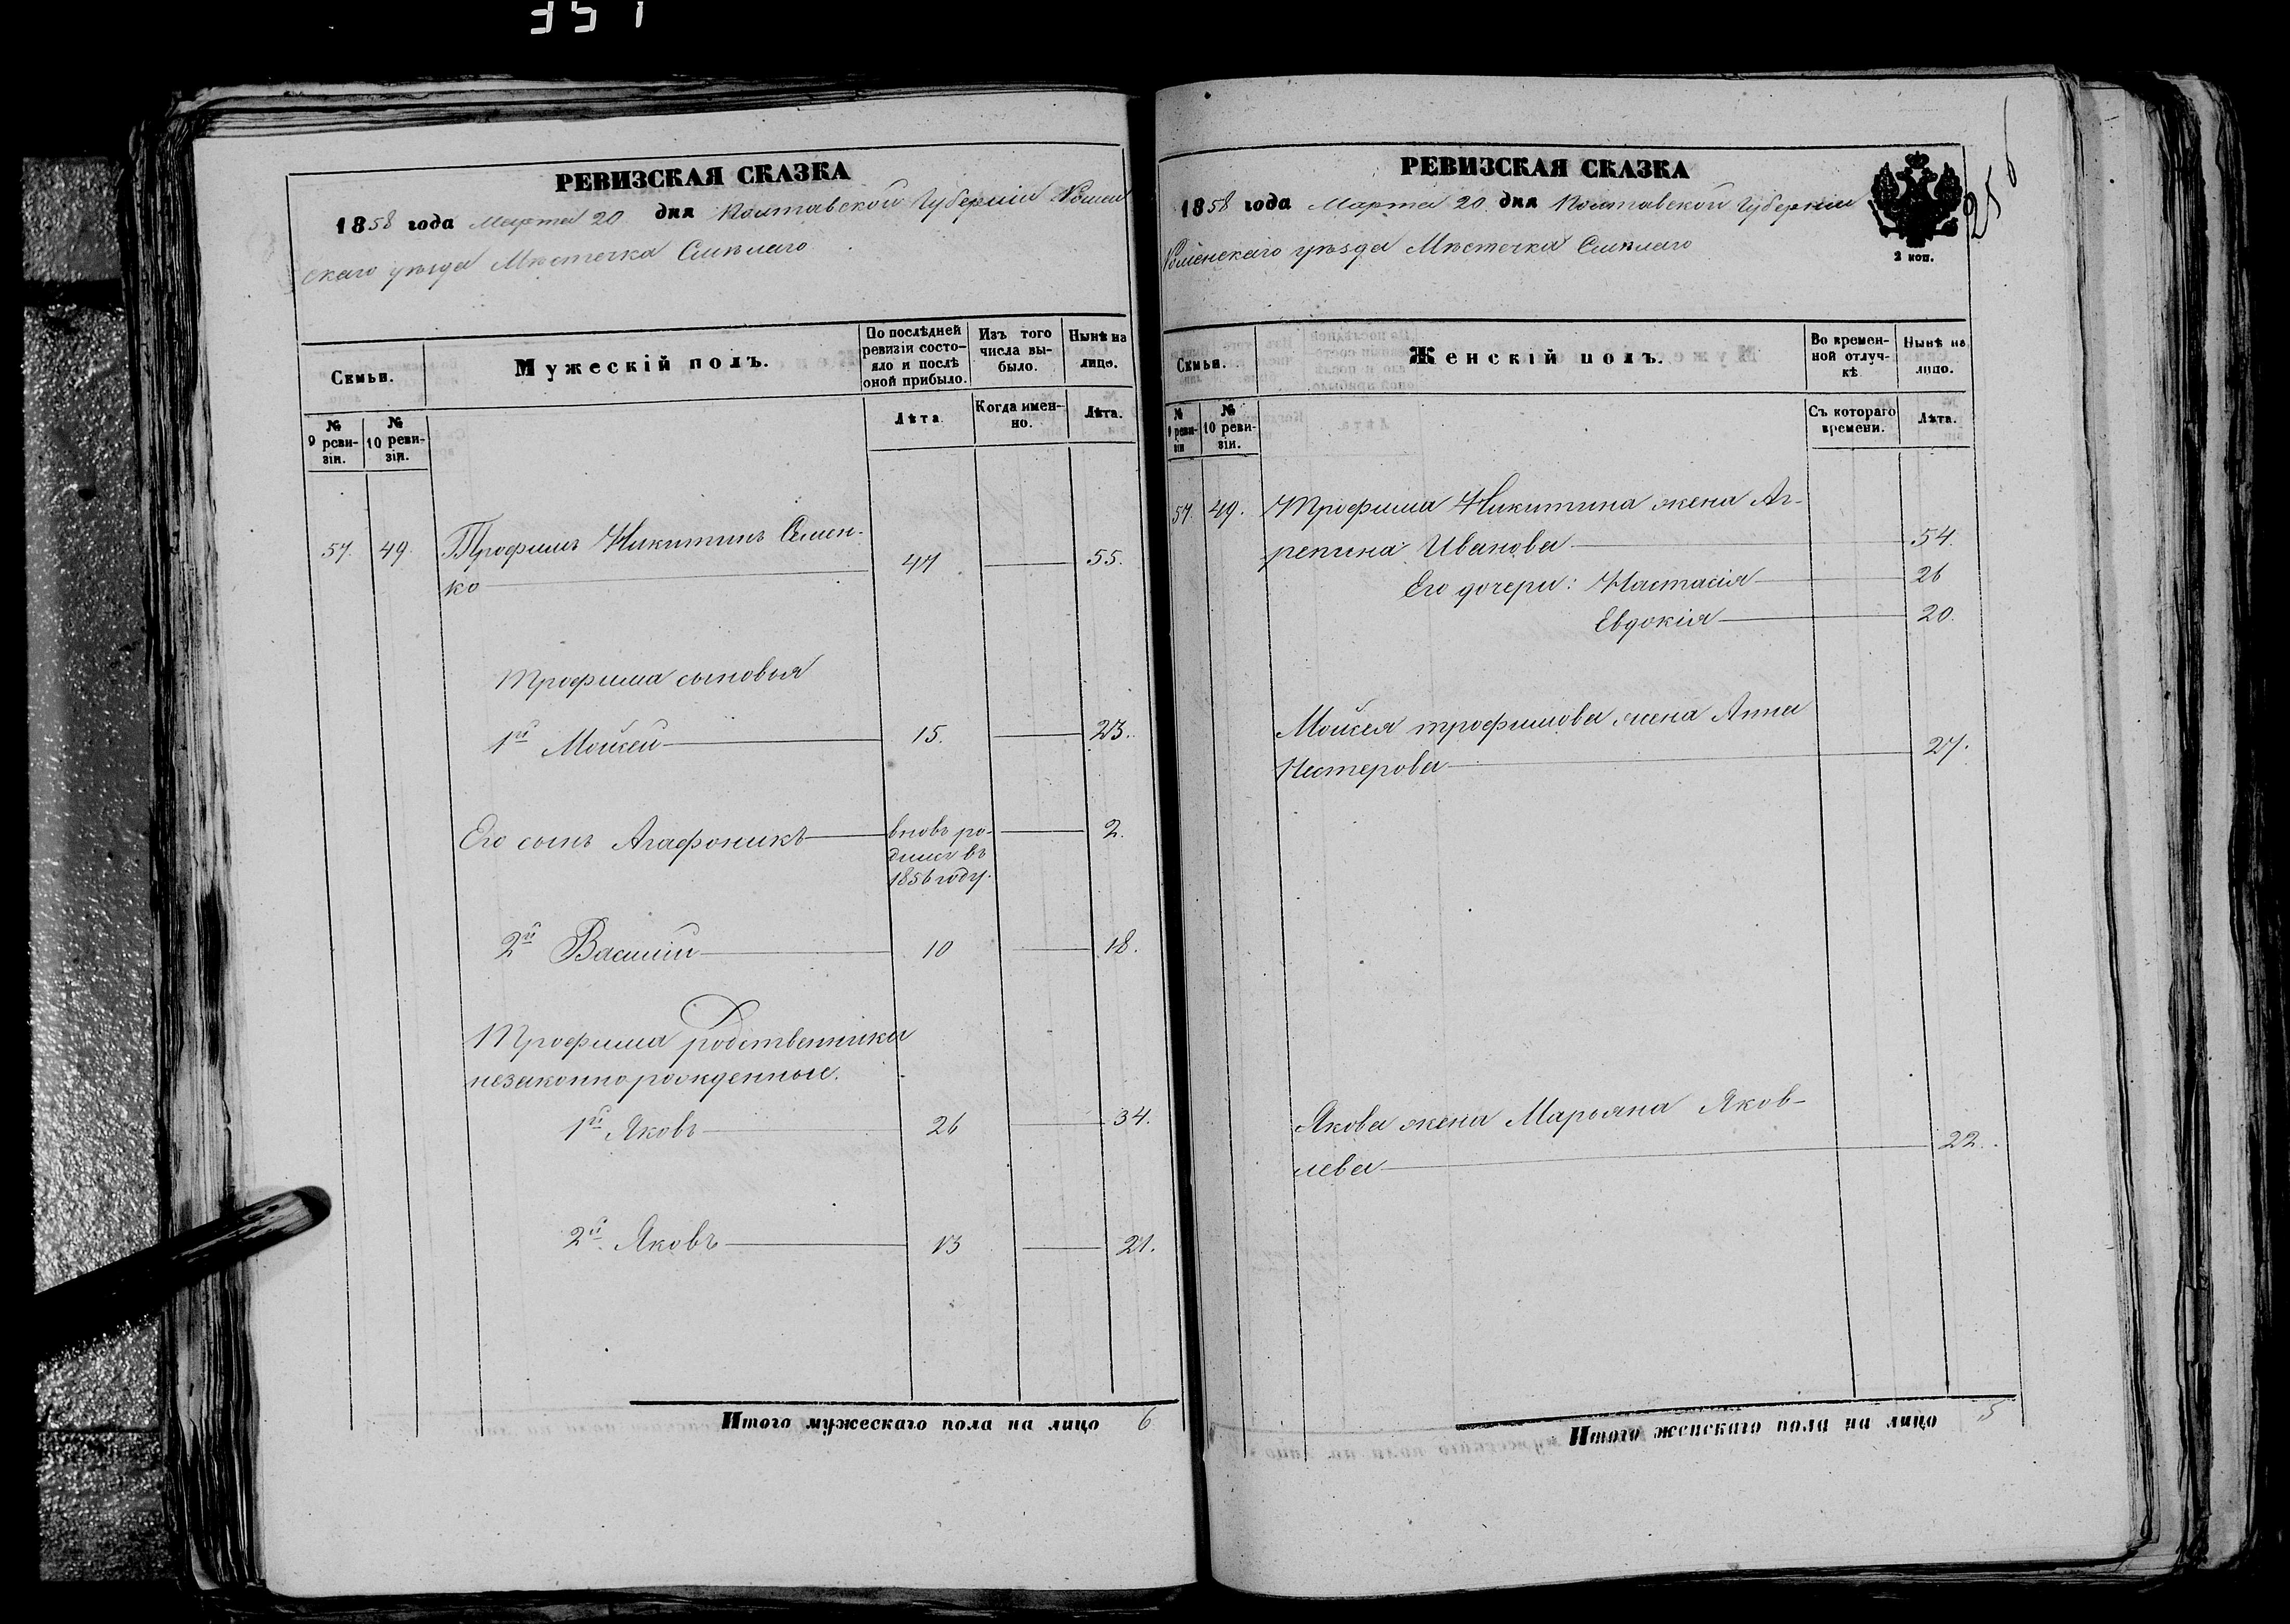 351
РЕВИЗСКАЯ СКАЗКА
1858 года Марта 20 дня Полтавской Губерніи Ромен
скаго уѣзда Мѣстечка Смѣлаго
Семьи.
Мужескій полъ.
По послѣдней ревизіи состояло и послѣ оной прибыло.
Изъ того числа выбыло.
Нынѣ на лицо.
№ 9 ревизіи.
№ 10 ревизіи.
Лѣта.
Когда именно.
Лѣта.
57. 49. Трофимъ Никитинъ Семен-
ко 47 55.
Трофима сыновья
1й Мойсей 15. 23.
Его сынъ Агафоникъ вновь ро- 2.
дился въ
1856 году.
2й Василій 10 18.
Трофима родственники
незаконнорожденные.
1й Яковъ 26 34.
2й Яковъ 13 21.
Итого мужескаго пола на лицо 6
РЕВИЗСКАЯ СКАЗКА
1858 года Марта 20 дня Полтавской Губерніи
Роменскаго уѣзда Мѣстечка Смѣлаго
2 коп.
256
Семьи.
Женскій полъ.
Во временной отлучкѣ
Нынѣ на лицо.
№ 9 ревизіи
№ 10 ревизіи.
Съ котораго времени.
Лѣта.
57. 49. Трофима Никитина жена Аг-
репина Иванова 54.
Его дочери: Настасія 26
Евдокія 20.
Мойсея трофимова жена Анна
Нестерова 27.
Якова жена Марьяна Яков-
лева 22.
Итого женскаго пола на лицо 5